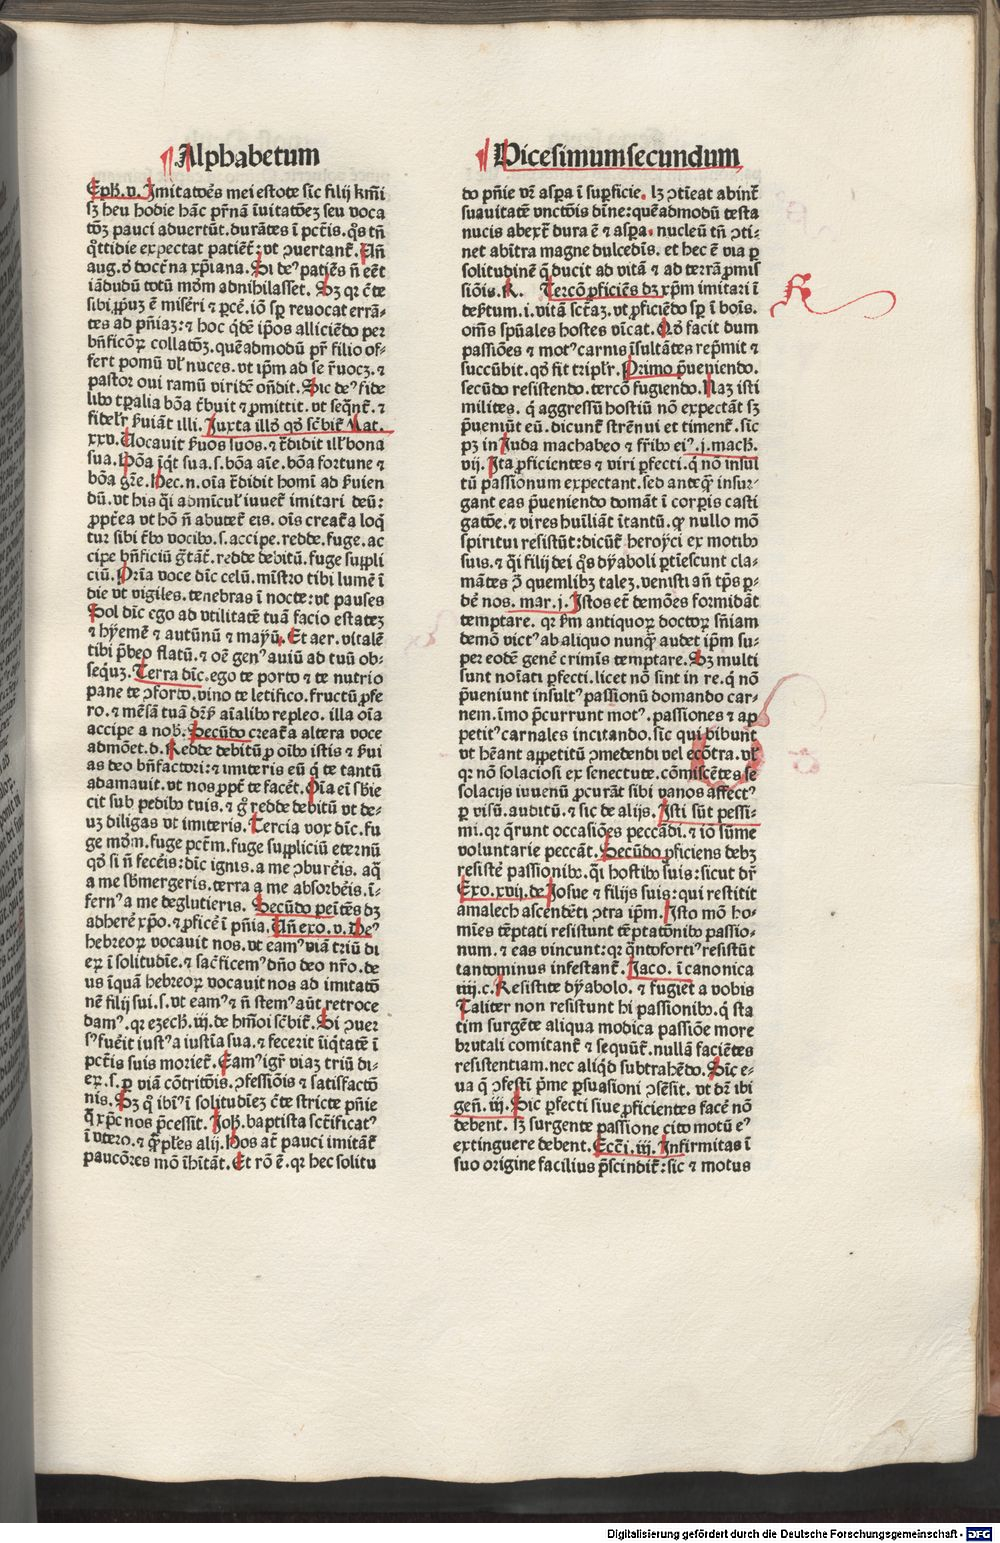 Alphabetum
Eph. v. Imitatoēs mei estote sic̄ filij km̄i
sʒ heu hodie hāc pr̄nā īuitatōeʒ seu voca
tōʒ pauci aduertūt. durātes ī pct̄is. q̄s tn̄
q̊ttidie expectat patiēt̄: vt ꝯuertant̄. Añ
aug. ð doct̄na xp̄iana. Si deꝰ patiēs n̄ eēt
iādudū totū mōm adnihilasset. Sʒ qr c̄te
sibi ꝓpuʒ ē misēri ⁊ ꝑcē. iō sꝑ reuocat errā-
tes ad pn̄iaʒ: ⁊ hoc q̄dē ip̄os alliciēdo per
bn̄ficōꝝ collatōʒ. quēadmodū pr̄ filio of-
fert pomū vl̓ nuces. vt ip̄m ad se r̄uocʒ. ⁊
pastor oui ramū viridē on̄dit. Sic deꝰ fide
libꝰ tꝑalia bōa t̄buit ⁊ ꝓmittit. vt seq̄nt̄. ⁊
fidel̓r ꝼuiāt illi. Juxta illð qð sc̄bit̄ Mat.
xxv. Uocauit ꝼuos suos. ⁊ t̄didit ill̓ bona
sua. Bōa īq̄t sua. s. bōa aīe. bōa fortune ⁊
bōa gr̄e. Hec. n. oīa t̄didit homī ad ꝼuien
dū. vt his q̄i admīcul̓ iuuet̄ imitari deū:
ꝓpt̄ea vt hō n̄ abutet̄ eis. oīs creat̄a loq̄
tur sibi t̄bꝰ vocibꝰ. s. accipe. redde. fuge. ac
cipe bn̄ficiū gt̄āt̄. redde debitū. fuge suppli
ciū. Prīa voce dīc celū. mīstro tibi lumē ī
die vt vigiles. tenebras ī nocte: vt pauses
Sol dīc ego ad vtilitatē tuā facio estateʒ
⁊ hÿemē ⁊ autūnū ⁊ maÿū. Et aer. vitalē
tibi p̄beo flatū. ⁊ oē genꝰ auiū ad tuū ob-
sequʒ. Terra dīc. ego te porto ⁊ te nutrio
pane te ꝯforto. vino te letifico. fructū ꝓfe
ro. ⁊ mēsā tuā dr̄ꝑ aīalibꝰ repleo. illa oīa
accipe a nob̄. Secūdo creat̄a altera voce
admōet. d. Redde debitū ꝓ oībꝰ istis ⁊ ꝼui
as deo bn̄factori: ⁊ imiteris eū q̄ te tantū
adamauit. vt nos ꝓpt̄ te facēt. Oīa eī sb̄ie
cit sub pedibꝰ tuis. ⁊ g̊ redde debitū vt de-
uʒ diligas vt imiteris. Tercia vox dīc. fu
ge mōm. fuge pctm̄. fuge suppliciū eternū
qð si n̄ fecēis: dīc ignis. a me ꝯburēis. aq̄
a me sb̄mergeris. terra a me absorbēis. ī-
fernꝰ a me deglutieris. Secūdo peītēs dʒ
adherē xp̄o. ⁊ ꝓficē ī pn̄ia. Añ exo. v. Deꝰ
hebreoꝝ vocauit nos. vt eamꝰ viā triū di
eꝝ ī solitudīe. ⁊ sac̄ficemꝰ dn̄o deo nr̄o. de
us īquā hebreoꝝ vocauit nos ad imitatō
nē filij sui. s. vt eamꝰ ⁊ n̄ stemꝰ aūt retroce
damꝰ. qr eʒech. iij. de hm̄oi sc̄bit̄. Si ꝯuer
sꝰ fuēit iustꝰ a iustīa sua. ⁊ fecerit īiq̄tatē ī
pct̄is suis moriet̄. Eamꝰ igr̄ viaʒ triū di-
eꝝ. s. ꝑ viā cōtritōis. ꝯfessiōis ⁊ satisfactō
nis. Sʒ q̊ ibīꝰ ī solitudīeʒ c̄te stricte pn̄ie
q̄ xp̄c nos p̄cessit. Joh. baptista sct̄ificatꝰ
ī vtero. ⁊ q̄ꝓpl̓es alij. Hos at̄ pauci imitāt̄
paucōres mō īhītāt̄. Et rō ē. qr hec solitu
Vicesimumsecundum
do pn̄ie vr̄ asꝑa ī suꝑficie. lʒ ꝯtīeat abint̄
suauitatē vnctōis dīne: quēadmodū testa
nucis abext̄ dura ē ⁊ asꝑa. nucleū tn̄ ꝯti-
net abītra magne dulcedīs. et hec ē via ꝑ
solitudinē q̄ ducit ad vitā ⁊ ad terrā ꝓmis
siōis. K. Tercō ꝓficiēs dʒ xp̄m imitari ī
deꝼtum. i. vitā sct̄aʒ. vt ꝓficiēdo sꝑ ī boīs.
oīms spn̄ales hostes vīcat. Qð facit dum
passiōes ⁊ motꝰ carnis īsultātes rep̄mit ⁊
succūbit. qð fit tripl̓r. Primo p̄ueniendo.
secūdo resistendo. tercō fugiendo. Naʒ isti
milites. q̄ aggressū hostiū nō expectāt sʒ
p̄ueniūt eū. dicunt̄ strēnui et timent̄. sic
pʒ in Juda machabeo ⁊ fr̄ibꝰ eiꝰ. j. mach.
vij. Ita ꝓficientes ⁊ viri ꝑfecti. q̄ nō insul
tū passionum expectant. sed anteq̄ insur-
gant eas p̄ueniendo domāt ī corꝑis casti
gatōe. ⁊ vires huīliāt ītantū. qꝫ nullo mō
spiritui resistūt: dicūt̄ heroÿci ex motibꝰ
suis. ⁊ q̄i filij dei q̄s dÿaboli ꝑtīescunt cla-
mātes ꝯ̄ quemlibʒ taleʒ. venisti añ tp̄s ꝑ-
dē nos. mar. j. Istos et̄ demōes formidāt
temptare. qr ꝼm antiquoꝝ doctoꝝ sn̄iam
demō victꝰ ab aliquo nunq̄ audet ip̄m su-
per eodē genē crimīs temptare. Sʒ multi
sunt noīati ꝑfecti. licet nō sint in re. q̄ nō
p̄ueniunt insultꝰ passionū domando car-
nem. īmo p̄currunt motꝰ. passiones ⁊ ap
petitꝰ carnales incitando. sic qui bibunt
vt hēant appetitū ꝯmedendi vel ecōtra. vl̓
qr nō solaciosi ex senectute. cōmiscētes se
solacijs iuuenū ꝓcurāt sibi vanos affectꝰ
ꝑ visū. auditū. ⁊ sic de alijs. Isti sūt pessi-
mi. qr q̄runt occasiōes peccādi. ⁊ iō sūme
voluntarie peccāt. Secūdo ꝓficiens debʒ
resistē passionibꝰ. q̄i hostibꝰ suis: sicut dr̄
Exo. xvij. de Josue ⁊ filijs suis: qui restitit
amalech ascendēti ꝯtra ip̄m. Isto mō ho-
mīes tēptati resistunt tēptatōnibꝰ passio-
num. ⁊ eas vincunt: qr q̄ntofortiꝰ resistūt
tantominus infestant̄. Jaco. ī canonica
iiij. c. Resistite dÿabolo. ⁊ fugiet a vobis
Taliter non resistunt hi passionibꝰ. q̄ sta
tim surgēte aliqua modica passiōe more
brutali comitant̄ ⁊ sequūt̄. nullā faciētes
resistentiam. nec aliq̄d subtrahēdo. Sīc e-
ua q̄ ꝯfesti p̄me ꝑsuasioni ꝯsēsit. vt dr̄ ibi
gen̄. iij. Sic ꝑfecti siue ꝓficientes facē nō
debent. sʒ surgente passione cito motū eꝰ
extinguere debent. Ecci̅. iij. Infirmitas ī
suo origine facilius p̄scindit̄: sic ⁊ motus
Digitalisierung gefördert durch die Deutsche Forschungsgemeinschaft - DFG